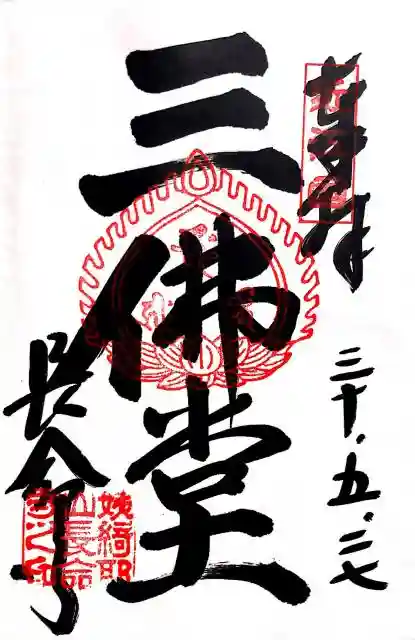 奉拝
三十、五、二七
三佛堂
長命寺
姨綺耶
山長命
寺之印